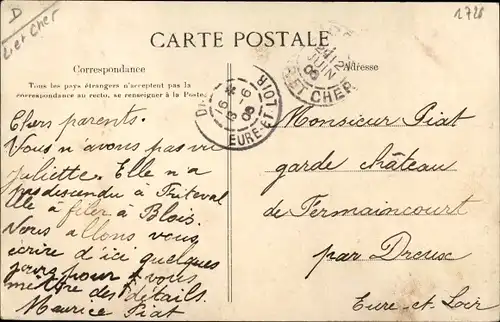 D
Loir et Cher
1728
CARTE POSTALE
Correspondance
Adresse
Tous les pays étrangers n'acceptent pas la
correspondance au recto, se renseigner à la Poste.
24 12
JUIN
08
ET CHER
EURE-ET-LOIR
Chers parents.
Vous n'avons pas vu
Juliette. Elle n'a
pas descendu à Friteval
elle a filer à Blois.
Nous allons vous
écrire d'ici quelques
jours pour vous
mettre des détails.
Maurice Piat
Monsieur Piat
garde château
de Fermaincourt
par Dreux
Eure-et-Loir